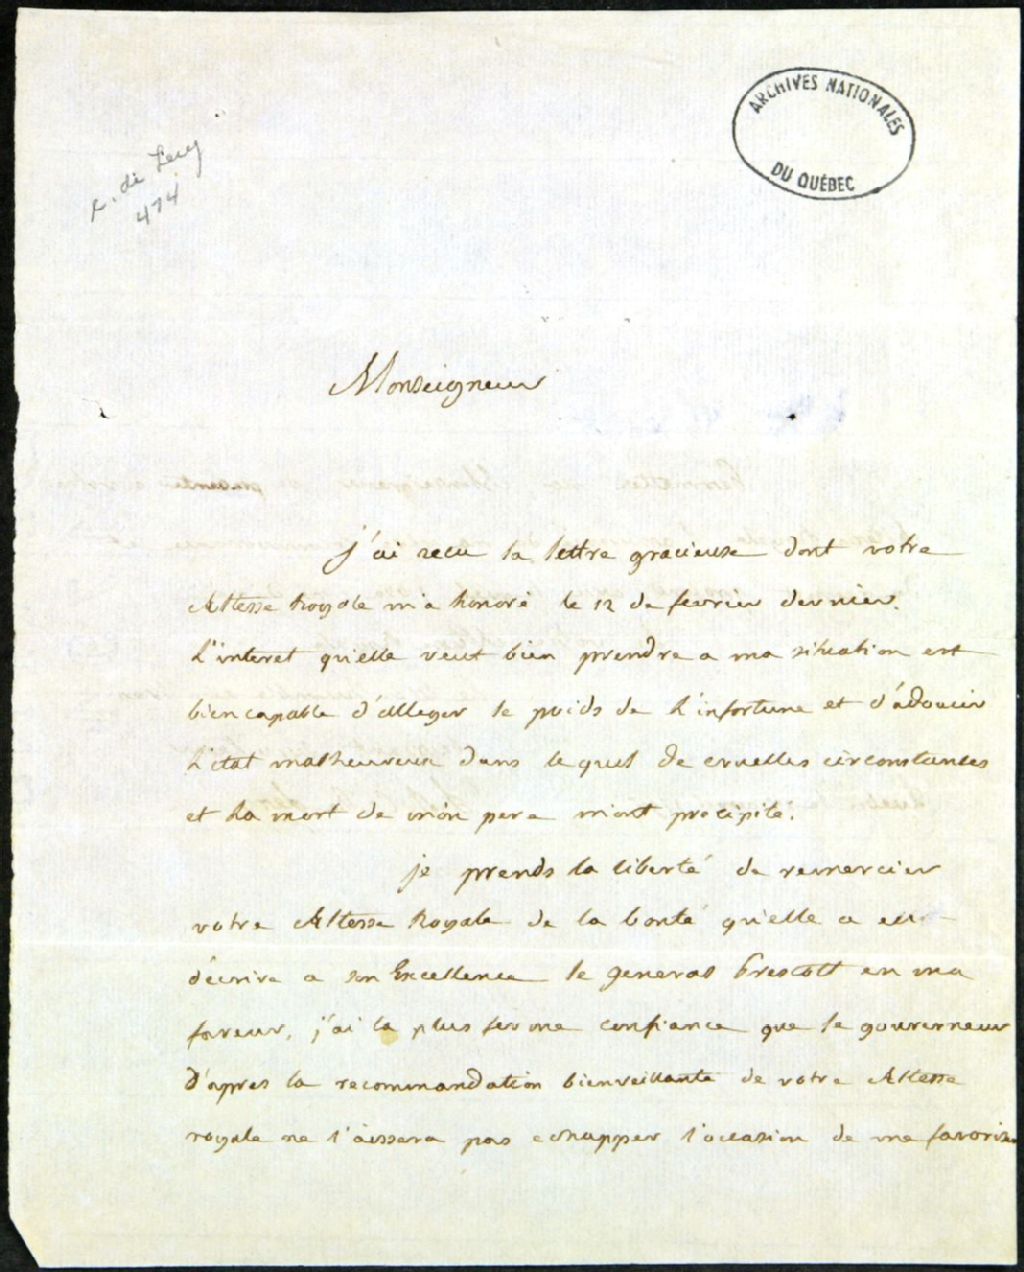 ARCHIVES NATIONALES
DU QUÉBEC
474
Monseigneur
j'ai recu la lettre gracieuse dont votre
Altesse Royale m'a honoré le 12 de fevrier dernier.
L'interet qu'elle veut bien prendre a ma situation est
bien capable d'alleger le poids de l'infortune et d'adoucir
l'etat malheureux dans le quel de cruelles circonstances
et la mort de mon pere m'ont precipité.
je prends la liberté de remercier
votre Altesse Royale de la bonté qu'elle a eu
d'ecrire a son Excellence le general Prescott en ma
faveur, j'ai la plus ferme confiance que le gouverneur
d'apres la recommandation bienveillante de votre Altesse
royale ne l'aissera pas echapper l'occasion de me favoriser